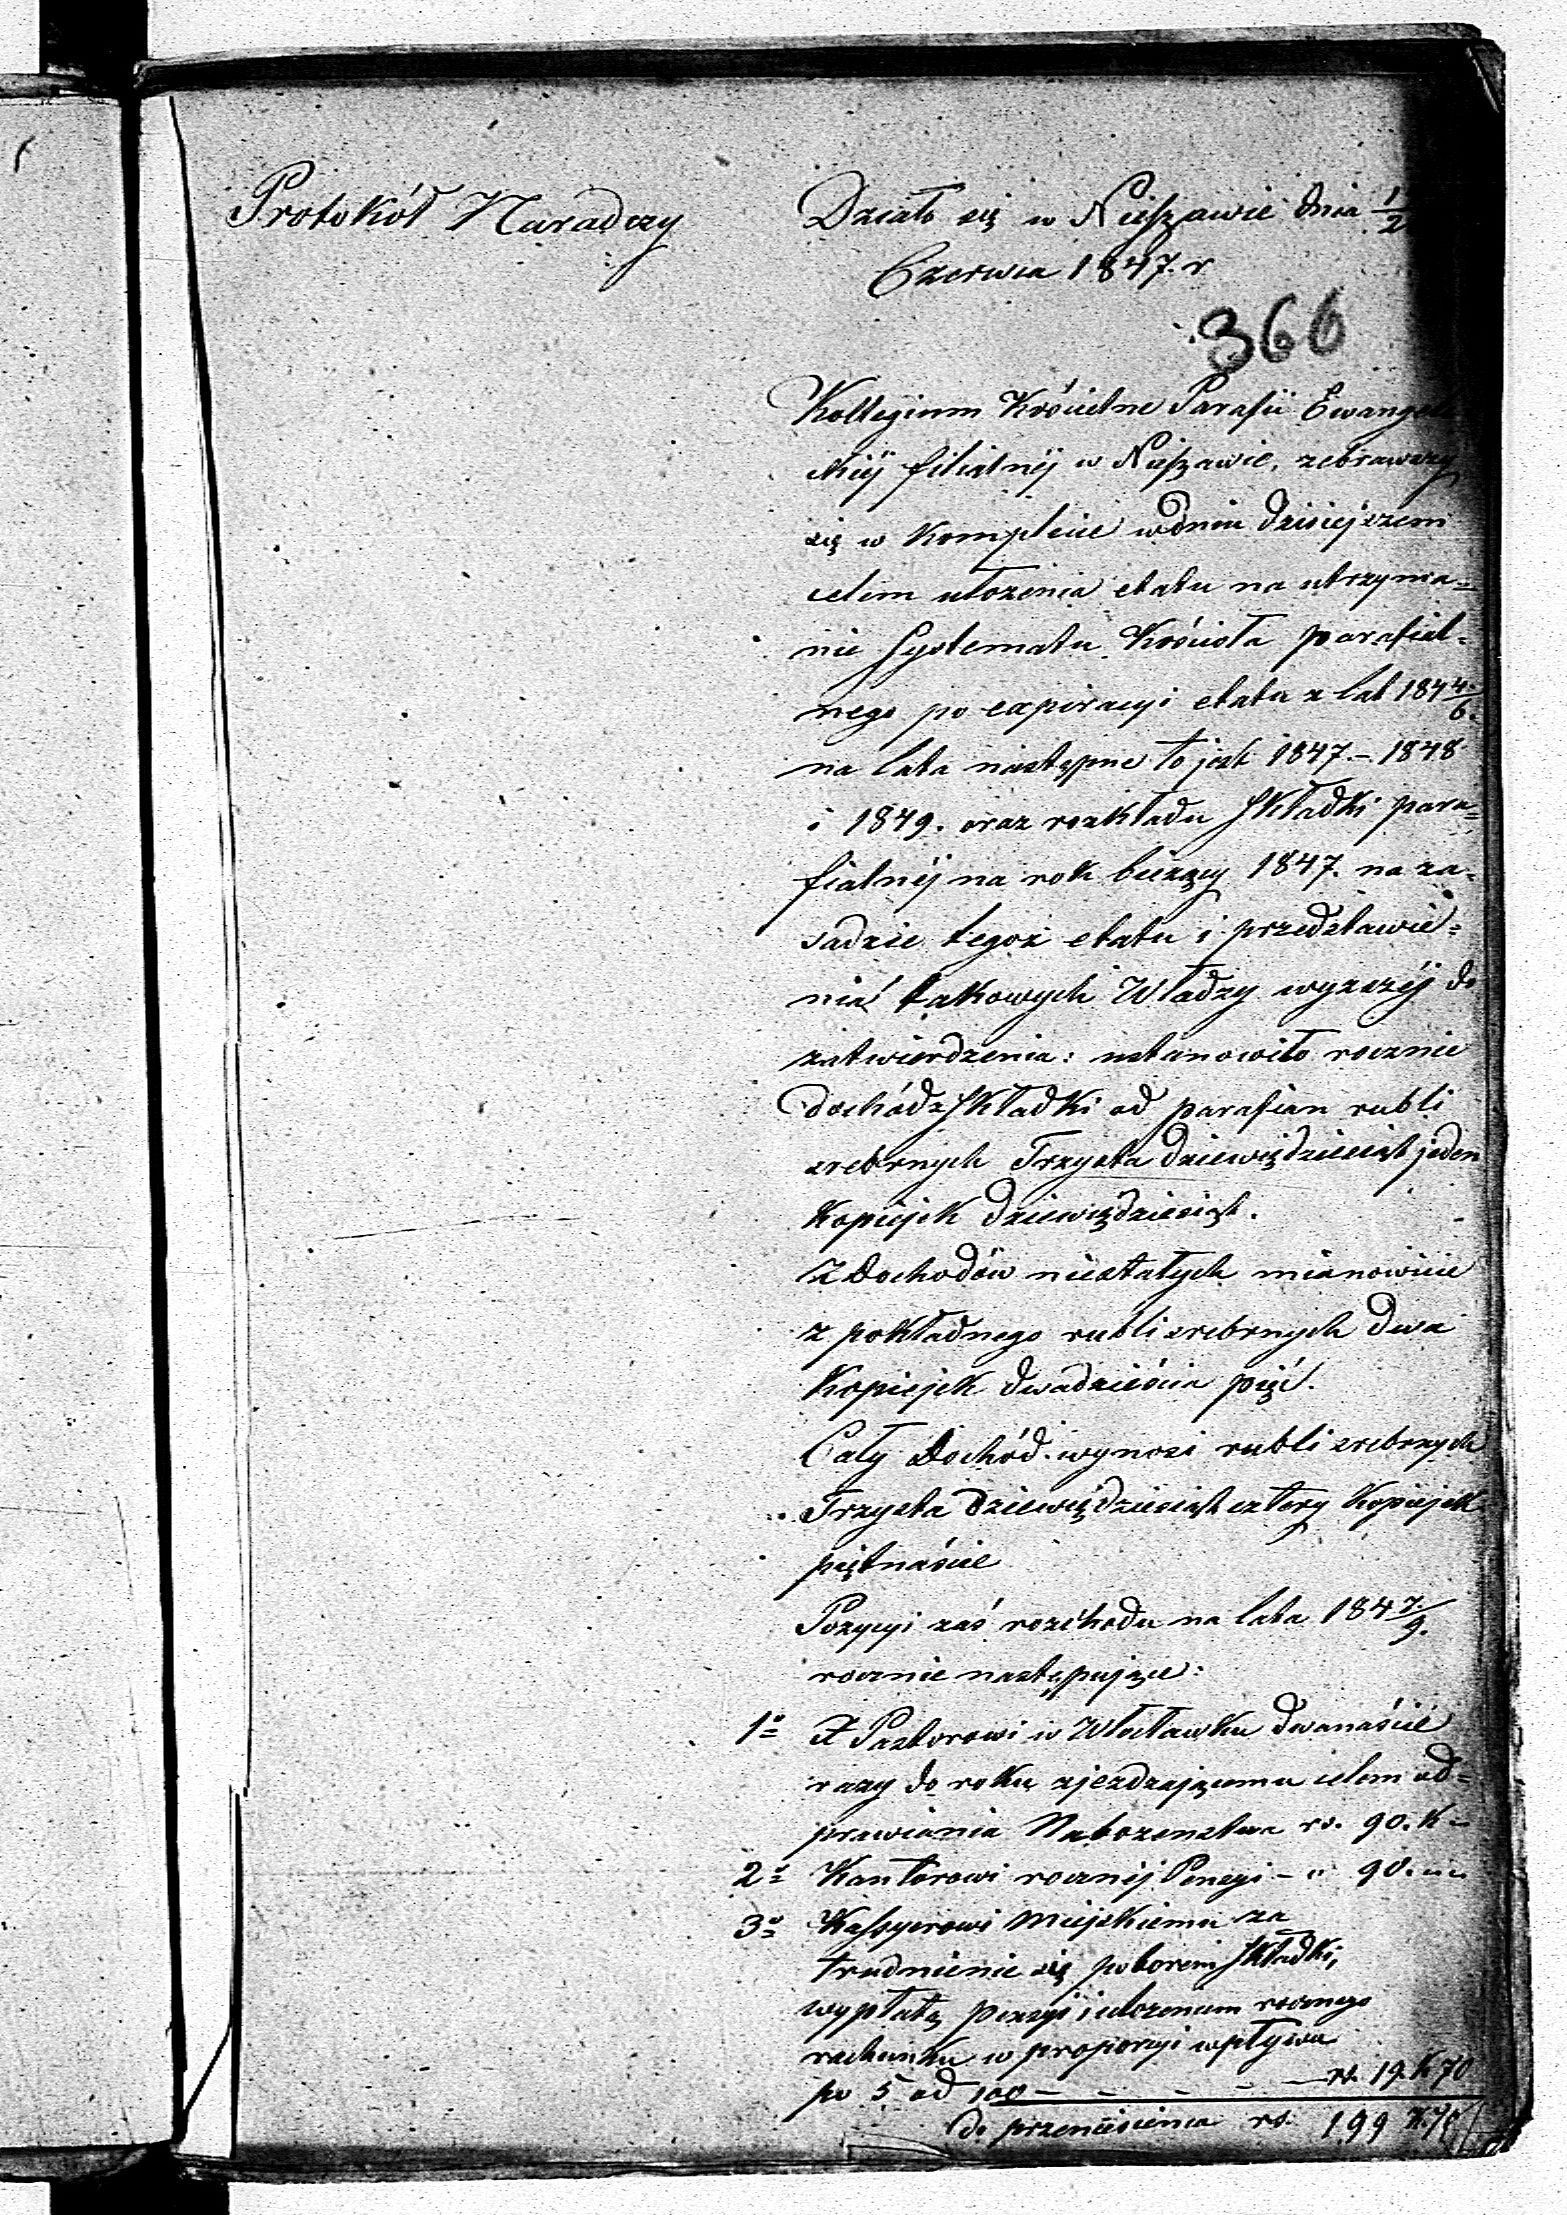 Protokół Naradczy
Działo się w Nieszawie dnia 1/2
Czerwca 1847. r
366
Kollegium Kościelne Parafii Ewangeli
ckiéj filialnéj w Nieszawie, zebrawszy
się w Komplecie w dniu dzisiejszem
celem ułożenia etatu na utrzyma=
nie Systematu Kościoła parafial=
nego po expiracyi etatu z lat 184 4/6.
na lata następne to jest 1847.– 1848
i 1849. oraz rozkładu Składki para=
fialnéj na rok bieżący 1847. na za=
sadzie tegoż etatu i przedstawie=
nia takowych Władzy wyższéj do
zatwierdzenia: ustanowiło rocznie
dochód z Składki od parafian rubli
srebrnych Trzysta dziewięćdziesiąt jeden
Kopiejek dziewięćdziesiąt.
Z Dochodów niestałych mianowicie
z pokładnego rubli srebrnych dwa
Kopiejek dwadzieścia pięć.
Cały Dochód wynosi rubli srebrnych
Trzysta dziewięćdziesiąt cztery Kopiejek
piętnaście
Pozycyi zaś rozchodu na lata 184 7/9.
rocznie następujące:
1o X Pastorowi w Włocławku dwanaście
razy do roku zjeżdzającemu celem od=
prawiania Nabożenstwa rs. 90. K –
2o Kantorowi rocznéj Pensyi – " 90. –
3o Kassyerowi Miejskiemu za
trudnienie się poborem Składki,
wypłatę pensyi i ułożeniem rocznego
rachunku w proporcyi wpływu
po 5 od 100 – – – – – rs. 19. K 70
do przeniesienia rs. 199 K. 70